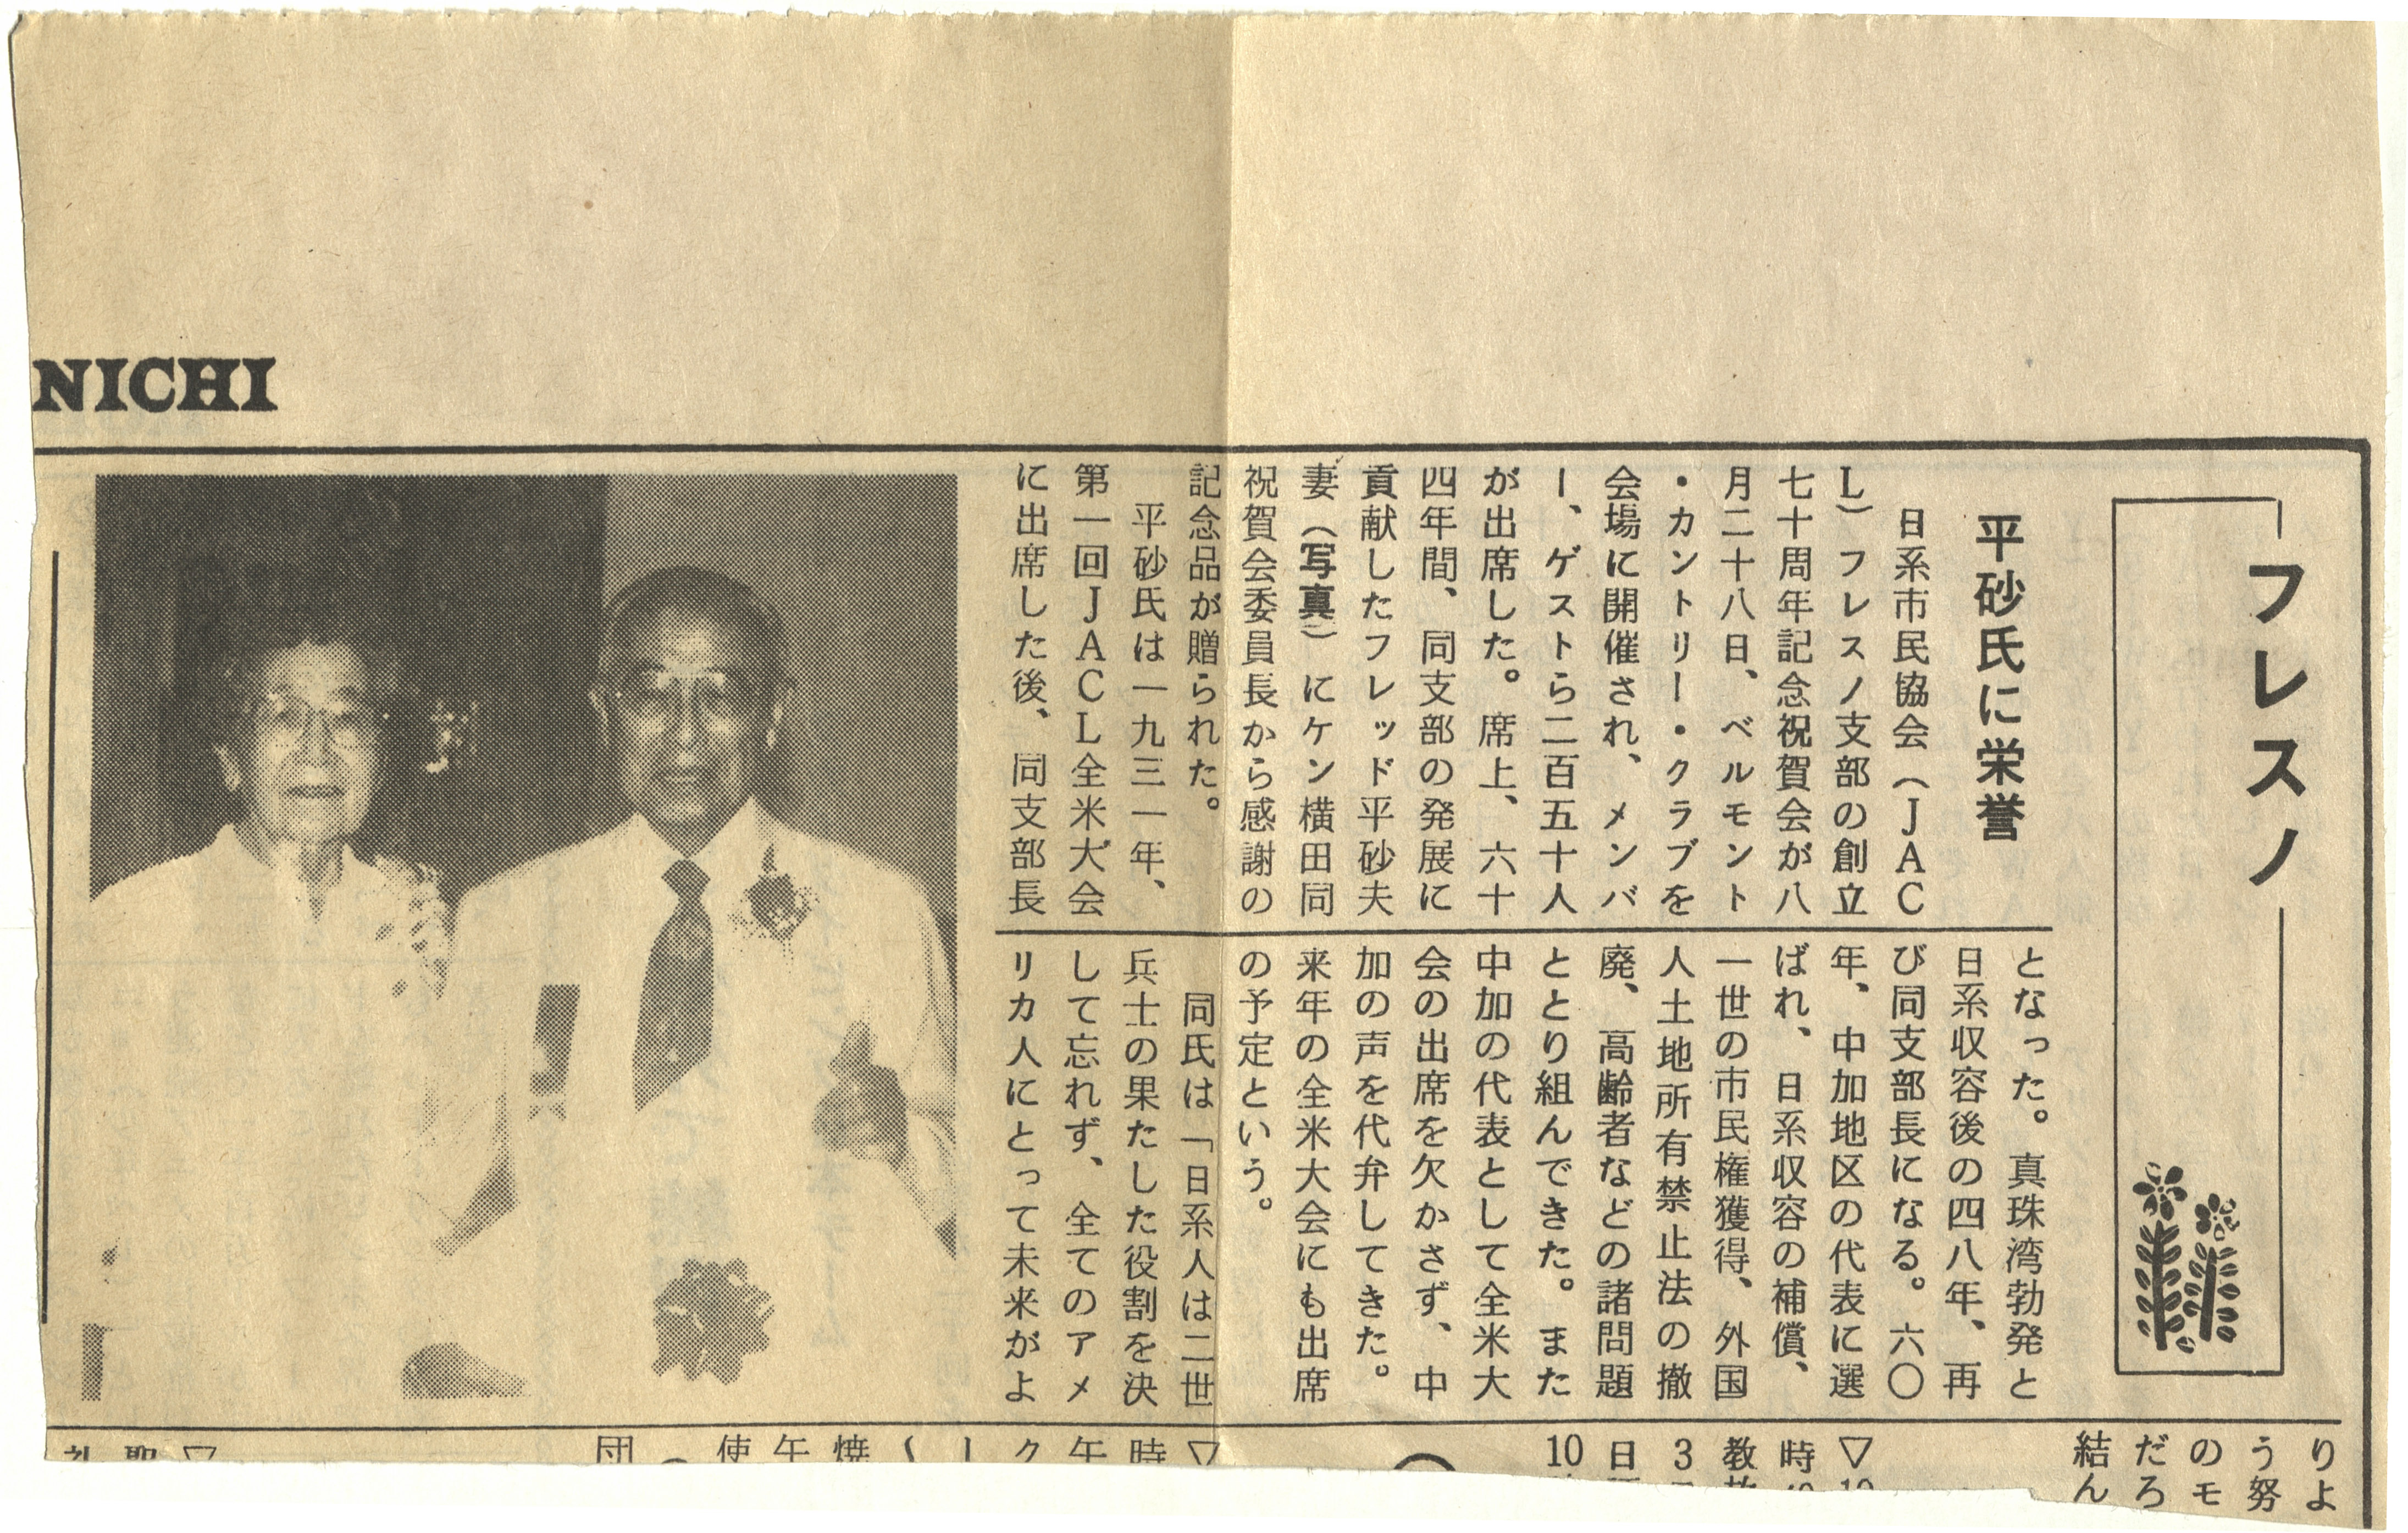 NICHI
フレスノ
平砂氏に栄誉
日系市民協会（JAC
L）フレスノ支部の創立
七十周年記念祝賀会が八
月二十八日、ベルモント
・カントリー・クラブを
会場に開催され、メンバ
ー、ゲストら二百五十人
が出席した。席上、六十
四年間、同支部の発展に
貢献したフレッド平砂夫
妻（写真）にケン横田同
祝賀会委員長から感謝の
記念品が贈られた。
平砂氏は一九三一年、
第一回JACL全米大会
に出席した後、同支部長
となった。真珠湾勃発と
日系収容後の四八年、再
び同支部長になる。六〇
年、中加地区の代表に選
ばれ、日系収容の補償、
一世の市民権獲得、外国
人土地所有禁止法の撤
廃、高齢者などの諸問題
ととり組んできた。また
中加の代表として全米大
会の出席を欠かさず、中
加の声を代弁してきた。
来年の全米大会にも出席
の予定という。
同氏は「日系人は二世
兵士の果たした役割を決
して忘れず、全てのアメ
リカ人にとって未来がよ
りよ
う努
のモ
だろ
結ん
▽
時
教
3
日
10
▽
時
午
ク
ー
焼
午
使
団
▽
聖